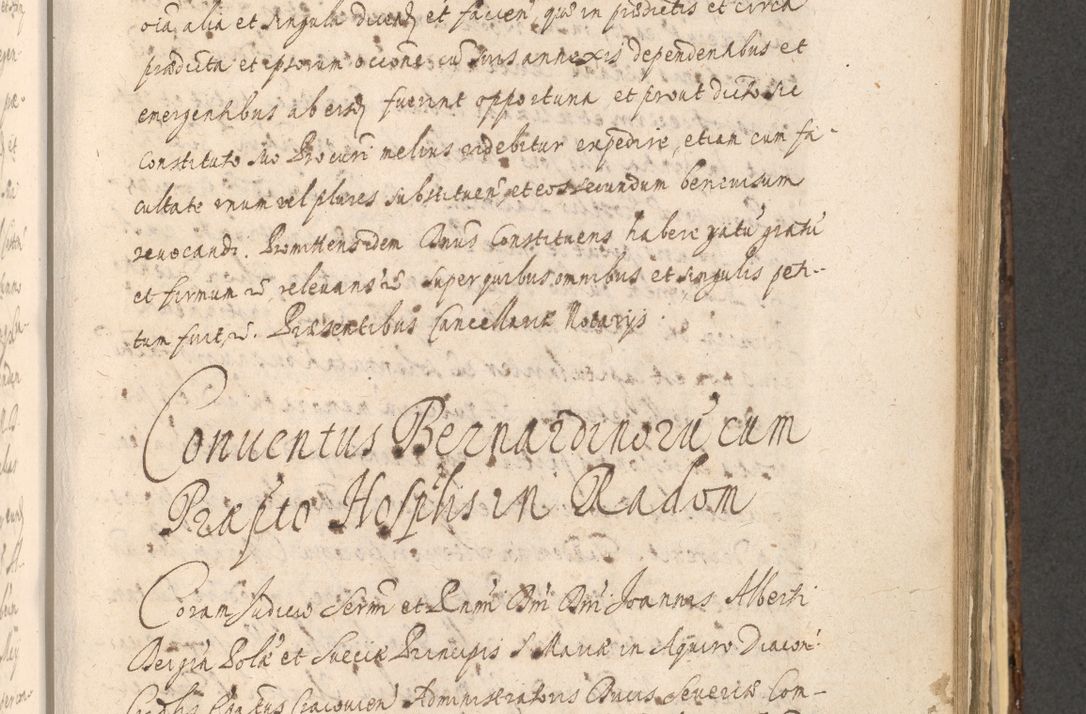 oīa, alia et singula dicend et facien̄ quæ in prædictis et circa
prædicta et ipsorum occōne cū suis annexis dependentibus et
emergentibus ab eisd fuerint opportuna et prout dicto sic
Constituto suo Procurī melius videbitur expedire, etiam cum fa-
cultate unum vel plures substituen̄ et eos secundum benevisum
revocandi. Promittens idem Dnūs Constituens habere ratū gratū
et firmum super quibus omnibus et singulis peti-
tum fuit, Præsentibus Cancellariæ Notarijs.
Conventus Bernardinorū cum
Præpto Hosplis in Radom
Coram Judicio Sermī et Rnmī Dnī Dnī Joannis Alberti
Regiū Polæ et Sueciæ Principis S. Mariæ in Aquiro Diacon
Cracovien Administratoris Ducis Severiæ Com-